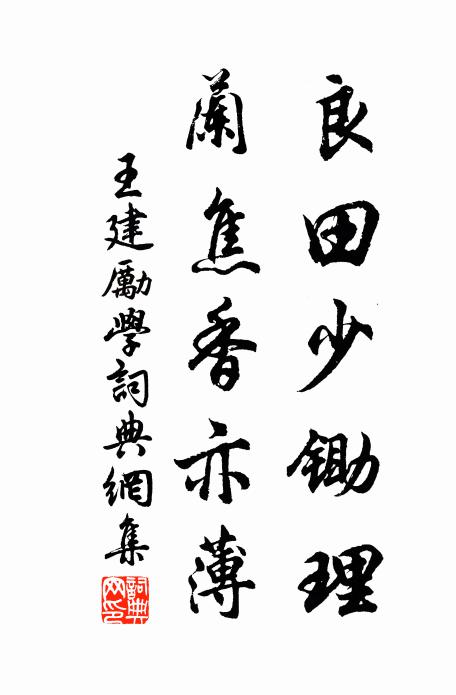 良田少鋤理
蘭焦香亦薄
王建勵學詞典網集
詞典網印